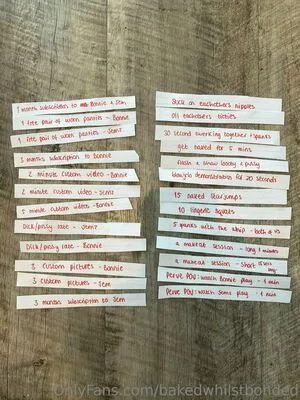 1 month subscriptions to Bonnie & Jem
1 free pair of worn panties - Bonnie
1 free pair of worn panties - Jemz
3 months subscription to Bonnie
2 minute custom video - Bonnie
2 minute custom video - Jemz
5 minute custom videos - Bonnie
Dick/pussy rate - Jemz
Dick/pussy rate - Bonnie
3 custom pictures - Bonnie
3 custom pictures - Jem
3 months subscription to Jem
Suck on eachothers nipples
Oil eachothers titties
30 second twerking together + spanks
get naked for 5 mins
flash & show booby & pussy
blowjob demonstration for 20 seconds
15 naked starjumps
10 lingerie squats
5 spanks with the whip - both of us
a makeout session - long 1 minutes
a makeout session - short 15 secs
Perve POV: watch Bonnie play - 1 min
Perve POV: watch Jemz play - 1 min
OnlyFans.com/bakedwhilstbonded